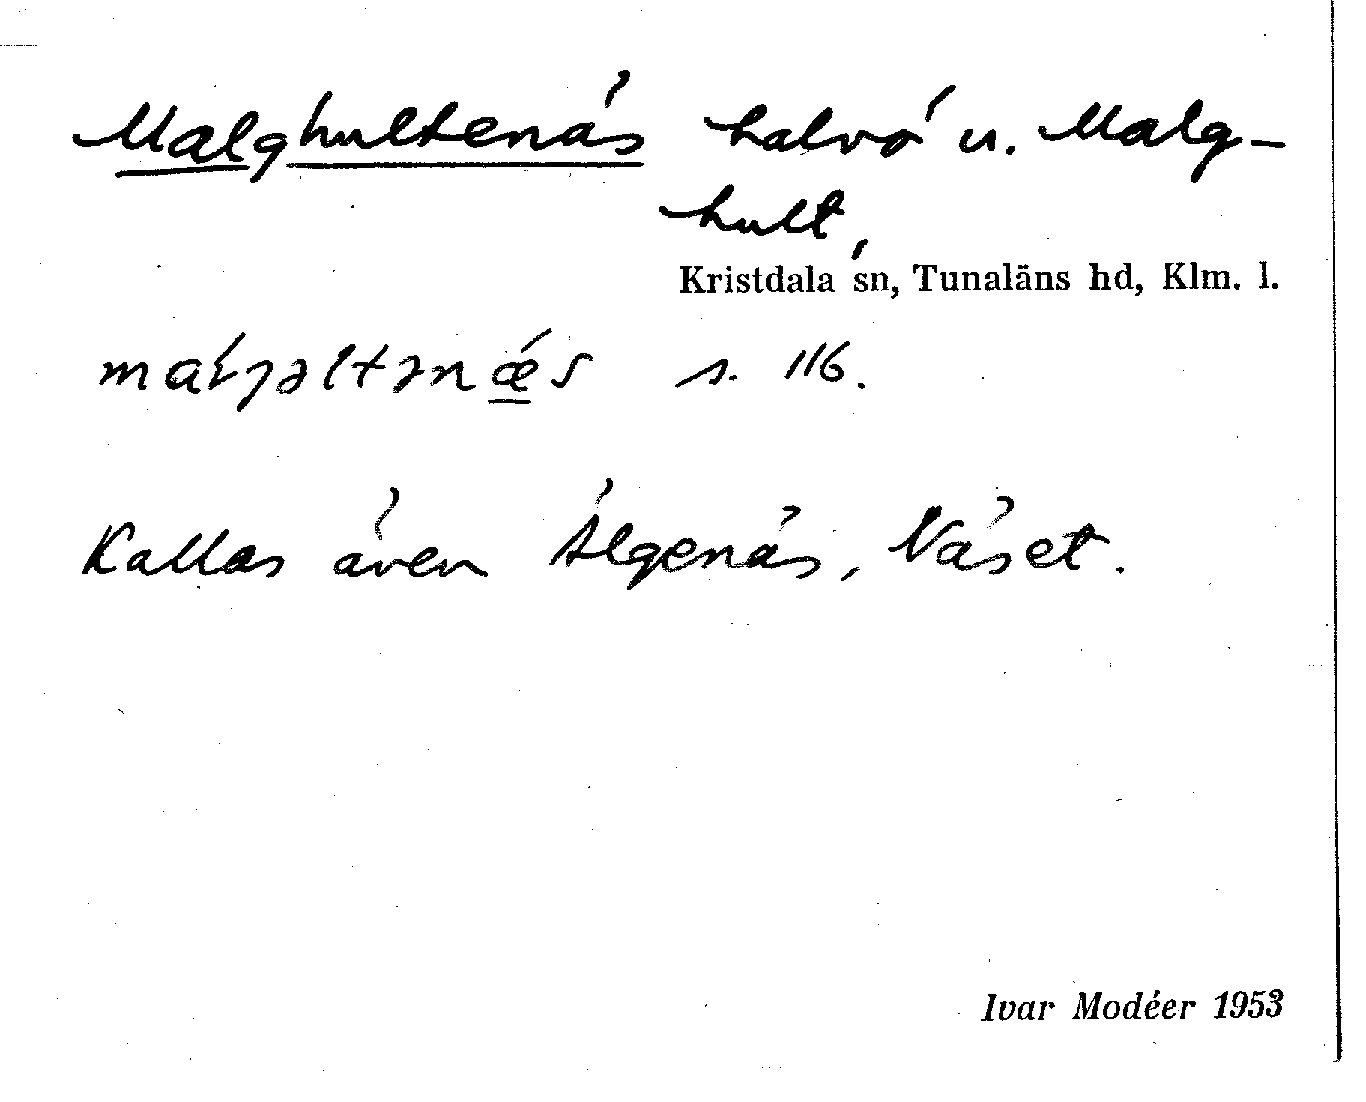 Malghultenäs halvö u. Malg-
hult,
Kristdala sn, Tunaläns hd, Klm. l.
s. 116.
Kallas även Älgenäs, Näset.
Ivar Modéer 1953